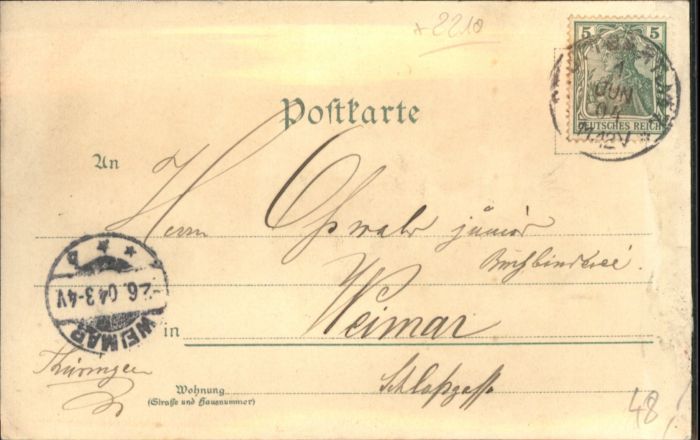 *2210
5 5
DEUTSCHES REICH
1
JUN
04
11-12V
Postkarte
An
Herrn Oswald junior
Buchbinderei.
in Weimar
WEIMAR
-2.6.04.3-4V
b
Thüringen
Schloßgasse
Wohnung
(Straße und Hausnummer)
48